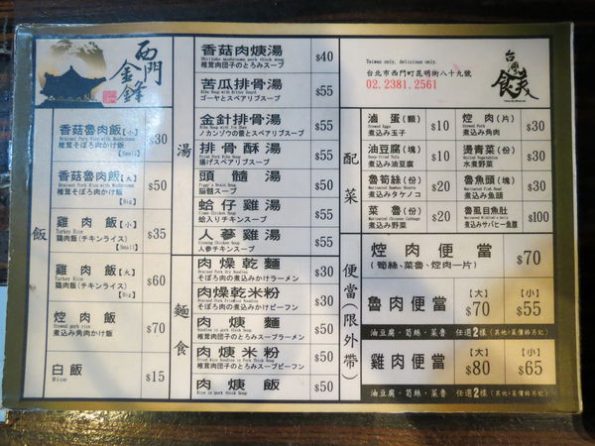 西門
金鋒
飯
香菇魯肉飯【小】 $30
香菇魯肉飯【大】 $50
雞肉飯【小】 $35
鶏肉飯(チキンライス)
雞肉飯【大】 $60
鶏肉飯(チキンライス)
焢肉飯 $70
煮込み角肉かけ飯
白飯 $15
Rice
湯
香菇肉焿湯 $40
苦瓜排骨湯 $55
ゴーヤとスペアリブスープ
金針排骨湯 $55
ノカンゾウの蕾とスペアリブスープ
排骨酥湯 $55
揚げスペアリブスープ
頭髓湯 $55
脳髄スープ
蛤仔雞湯 $55
蛤入りチキンスープ
人蔘雞湯 $55
人参チキンスープ
麵食
肉燥乾麵 $30
そぼろ肉の煮込みかけラーメン
肉燥乾米粉 $30
そぼろ肉の煮込みかけビーフン
肉焿麵 $50
肉焿米粉 $50
肉焿飯 $50
台灣
食美
Taiwan only, delicious only.
台北市西門町昆明街八十九號
02.2381.2561
配菜
滷蛋(顆) $10
煮込み玉子
焢肉(片) $30
煮込み角肉
油豆腐(塊) $10
煮込み油豆腐
燙青菜(份) $30
水煮野菜
魯筍絲(份) $20
煮込みタケノコ
魯魚頭(塊) $30
煮込み魚頭
菜魯(份) $20
煮込み野菜
魯虱目魚肚 $100
煮込みサバヒー魚腹
便當(限外帶)
焢肉便當 $70
(筍絲、菜魯、焢肉一片)
魯肉便當 【大】$70 【小】$55
油豆腐、筍絲、菜魯 任選2樣
雞肉便當 【大】$80 【小】$65
油豆腐、筍絲、菜魯 任選2樣